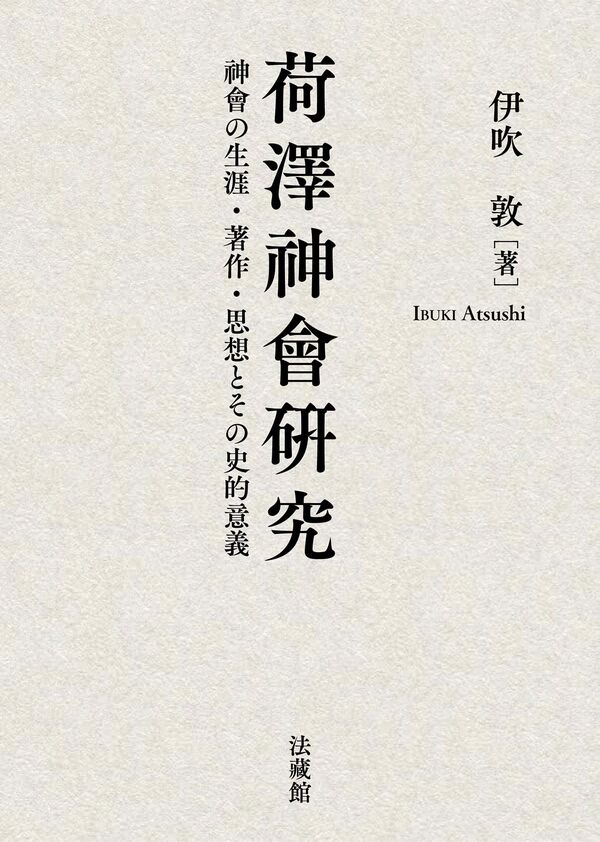 伊吹 敦[著]
IBUKI Atsushi
荷澤神會研究
神會の生涯・著作・思想とその史的意義
法藏館